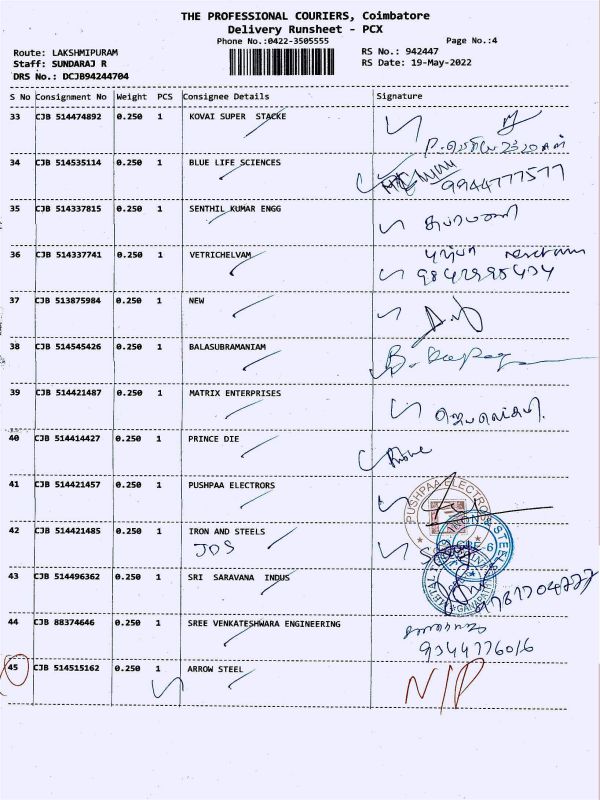 THE PROFESSIONAL COURIERS, Coimbatore
Delivery Runsheet - PCX
Phone No.:0422-3505555
Page No.:4
Route: LAKSHMIPURAM
RS No.: 942447
Staff: SUNDARAJ R
RS Date: 19-May-2022
DRS No.: DCJB94244704
S No Consignment No Weight PCS Consignee Details Signature
33 CJB 514474892 0.250 1 KOVAI SUPER STACKE
34 CJB 514535114 0.250 1 BLUE LIFE SCIENCES
9944777577
35 CJB 514337815 0.250 1 SENTHIL KUMAR ENGG
36 CJB 514337741 0.250 1 VETRICHELVAM
37 CJB 513875984 0.250 1 NEW
38 CJB 514545426 0.250 1 BALASUBRAMANIAM
39 CJB 514421487 0.250 1 MATRIX ENTERPRISES
40 CJB 514414427 0.250 1 PRINCE DIE
41 CJB 514421457 0.250 1 PUSHPAA ELECTRORS
PUSHPAA ELECTRO
42 CJB 514421485 0.250 1 IRON AND STEELS
JDS
43 CJB 514496362 0.250 1 SRI SARAVANA INDUS
44 CJB 88374646 0.250 1 SREE VENKATESHWARA ENGINEERING
9344776016
45 CJB 514515162 0.250 1 ARROW STEEL
N/P